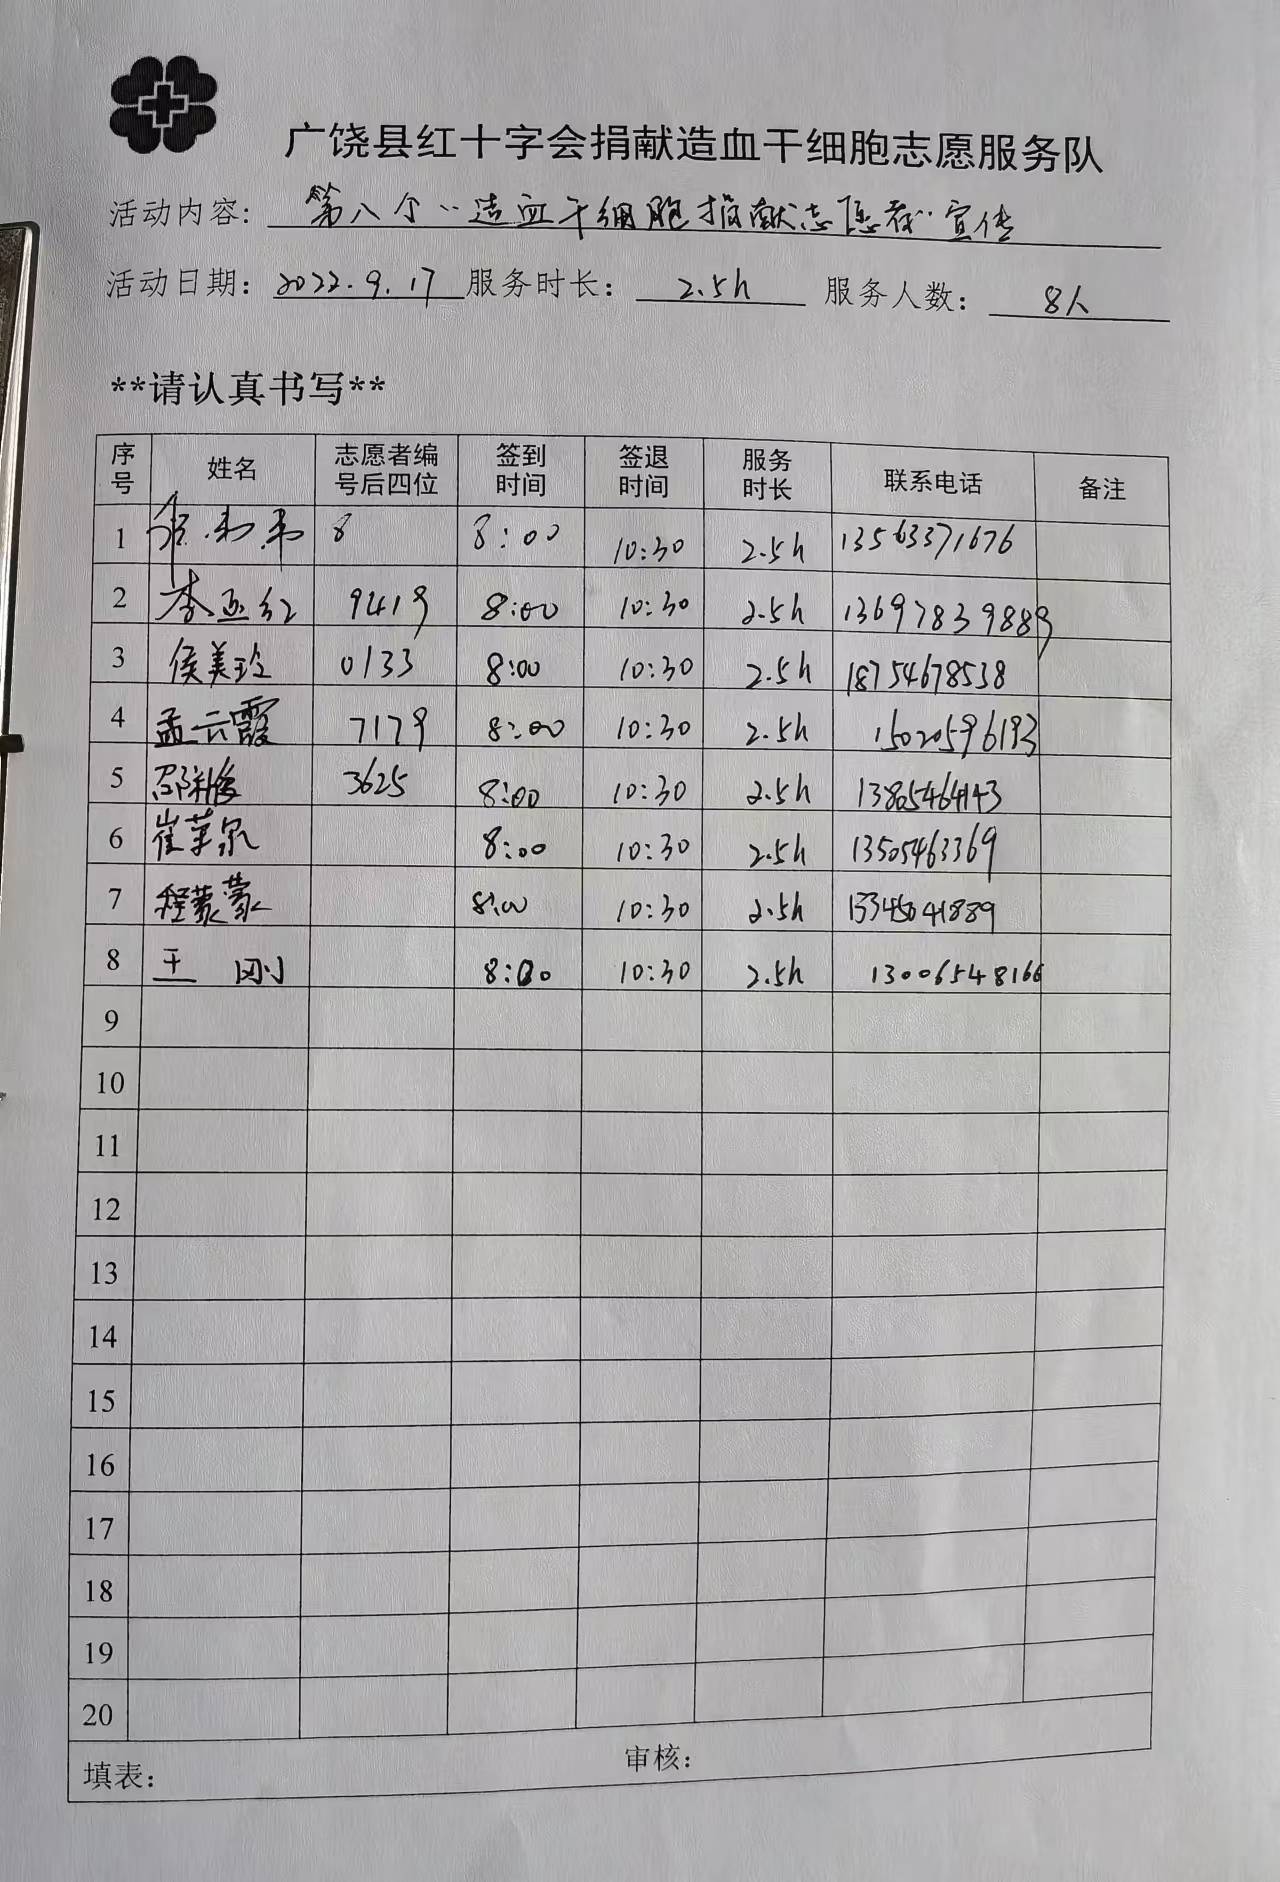 广饶县红十字会捐献造血干细胞志愿服务队
活动内容: 第八个"造血干细胞捐献志愿者"宣传
活动日期: 2022.9.17 服务时长: 2.5h 服务人数: 8人
**请认真书写**
序号 姓名 志愿者编号后四位 签到时间 签退时间 服务时长 联系电话 备注
1 8 8:00 10:30 2.5h 13563371676
2 李亚红 9419 8:00 10:30 2.5h 13697839889
3 侯美玲 0133 8:00 10:30 2.5h 18754678538
4 孟云霞 7179 8:00 10:30 2.5h 15020596193
5 3625 8:00 10:30 2.5h 13805464143
6 崔苹泉 8:00 10:30 2.5h 13505463369
7 程蒙蒙 8:00 10:30 2.5h
8 王刚 8:00 10:30 2.5h 13006548166
9
10
11
12
13
14
15
16
17
18
19
20
填表: 审核: